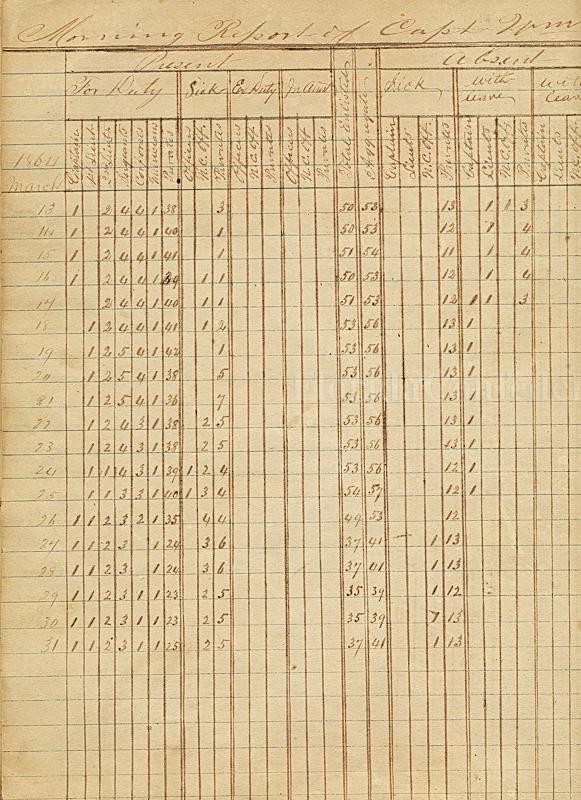 Morning Report of Capt
Present Absent
For Duty Sick Ex Duty In Arrest Total Enlisted Aggregate Sick with leave
1864
March Captain 1st Lieut 2nd Lieuts Sergeants Corporals Musician Privates Officers N.C. Off. Privates Officers N.C. Off. Privates Officers N.C. Off. Privates Captain Lieuts N.C. Off. Privates Captain Lieuts N.C. Off. Privates Captain Lieuts N.C. Off.
13 1 2 4 4 1 38 3 50 53 13 1 1 3
14 1 2 4 4 1 40 1 50 53 12 1 4
15 1 2 4 4 1 41 1 51 54 11 1 4
16 1 2 4 4 1 39 1 1 50 53 12 1 4
17 2 4 4 1 40 1 1 51 53 12 1 1 3
18 1 2 4 4 1 41 1 2 53 56 13 1
19 1 2 5 4 1 42 1 53 56 13 1
20 1 2 5 4 1 38 5 53 56 13 1
21 1 2 5 4 1 36 7 53 56 13 1
22 1 2 4 3 1 38 2 5 53 56 13 1
23 1 2 4 3 1 38 2 5 53 56 13 1
24 1 1 4 3 1 39 1 2 4 53 56 12 1
25 1 1 3 3 1 40 1 3 4 54 57 12 1
26 1 1 2 3 2 1 35 4 4 49 53 12
27 1 1 2 3 1 24 3 6 37 41 1 13
28 1 1 2 3 1 24 3 6 37 41 1 13
29 1 1 2 3 1 1 23 2 5 35 39 1 12
30 1 1 2 3 1 1 23 2 5 35 39 1 13
31 1 1 2 3 1 1 25 2 5 37 41 1 13